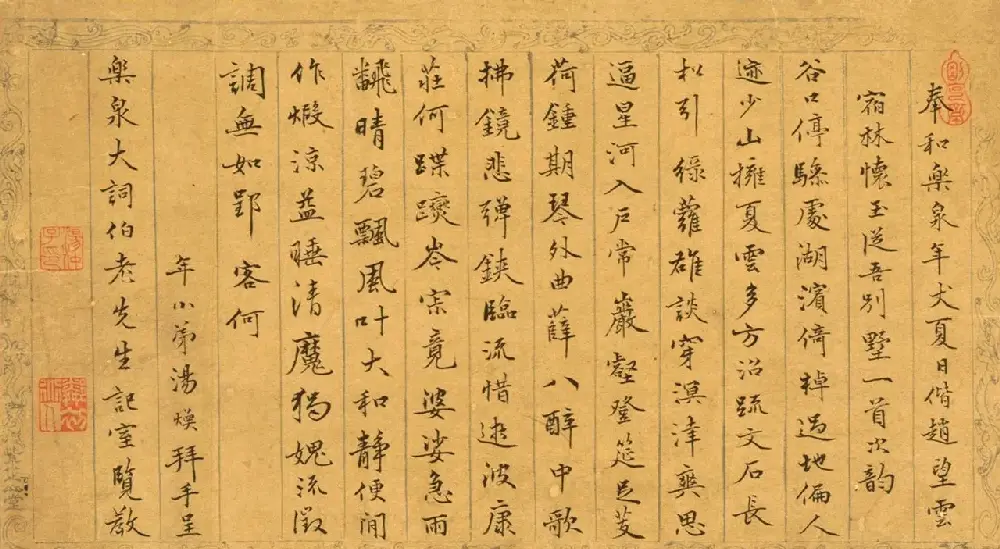 奉和樂泉年丈夏日偕趙望雲
宿林懷玉從吾別墅一首次韵
谷口停驂處湖濱倚棹過地偏人
迹少山擁夏雲多方沼疏文石長
松引緑蘿雄談穿溟涬爽思
逼星河入戶常巖壑登筵足芰
荷鍾期琴外曲薛八醉中歌
拂鏡悲彈鋏臨流惜逝波康
莊何蹀躞岑宗竟婆娑急雨
飜晴碧飄風叶大和靜便閒
作煅涼益睡清魔獨媿流徵
調無如郢客何
年小弟湯煥拜手呈
樂泉大詞伯老先生記室覽教